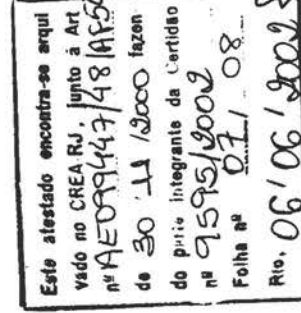 Este atestado encontra-se arqui
vado no CREA-RJ, junto à Art
nº AE099447/48/AF50
de 30 11 /2000 fazen
do parte integrante da Certidão
nº 9595/2002
Folha nº 07 / 08
Rio, 06/06/2002